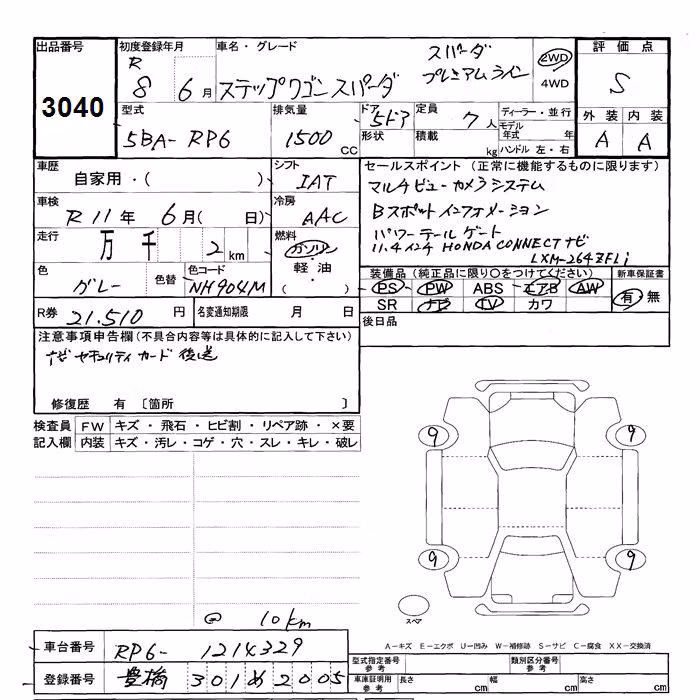 出品番号
3040
初度登録年月
R 8 6月
車名・グレード
ステップワゴンスパーダ
スパーダ
プレミアムライン
2WD
4WD
評価点
S
外装 内装
A A
型式
5BA-RP6
排気量
1500 CC
ドア
5ドア
形状
定員
7人
積載
kg
ディーラー・並行
モデル年式 年
ハンドル 左・右
車歴
自家用・( )
シフト
IAT
車検
R11年 6月( 日)
冷房
AAC
走行
万千 2 km
燃料
ガソリン
軽油
( )
色
グレー
色替
色コード
NH904M
R券 21.510 円
名変通知期限 月 日
セールスポイント (正常に機能するものに限ります)
マルチビューカメラシステム
Bスポットインフォメーション
パワーテールゲート
11.4インチ HONDA CONNECTナビ
LXM-264ZFLi
装備品 (純正品に限り○をつけてください)
PS PW ABS エアB AW
SR ナビ TV カワ
新車保証書
有・無
後日品
注意事項申告欄 (不具合内容等は具体的に記入して下さい)
ナビ セキュリティカード 後送
修復歴 有 〔箇所 〕
検査員記入欄
FW キズ・飛石・ヒビ割・リペア跡・×要
内装 キズ・汚レ・コゲ・穴・スレ・キレ・破レ
9 9
9 9
スペア
@ 10km
A-キズ E-エクボ U-凹み W-補修跡 S-サビ C-腐食 XX-交換済
車台番号 RP6-1214329
登録番号 豊橋 301 め 2005
型式指定番号 参考
類別区分番号 参考
車庫証明用 参考
長さ cm 幅 cm 高さ cm